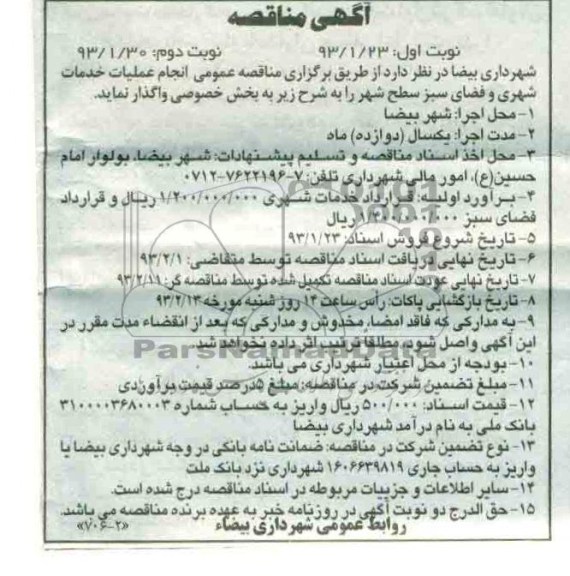 آگهی مناقصه
نوبت اول: ۹۳/۱/۲۳ نوبت دوم: ۹۳/۱/۳۰
شهرداری بیضا در نظر دارد از طریق برگزاری مناقصه عمومی انجام عملیات خدمات
شهری و فضای سبز سطح شهر را به شرح زیر به بخش خصوصی واگذار نماید.
۱- محل اجرا: شهر بیضا
۲- مدت اجرا: یکسال (دوازده) ماه
۳- محل اخذ اسناد مناقصه و تسلیم پیشنهادات: شهر بیضا، بولوار امام
حسین(ع)، امور مالی شهرداری تلفن: ۷-۷۶۲۲۱۹۶-۰۷۱۲
۴- برآورد اولیه: قرارداد خدمات شهری ۱/۲۰۰/۰۰۰/۰۰۰ ریال و قرارداد
فضای سبز ریال
۵- تاریخ شروع فروش اسناد: ۹۳/۱/۲۳
۶- تاریخ نهایی دریافت اسناد مناقصه توسط متقاضی: ۹۳/۲/۱
۷- تاریخ نهایی عودت اسناد مناقصه تکمیل شده توسط مناقصه گر: ۹۳/۲/۱۱
۸- تاریخ بازگشایی پاکات: رأس ساعت ۱۴ روز شنبه مورخه ۹۳/۲/۱۳
۹- به مدارکی که فاقد امضا، مخدوش و مدارکی که بعد از انقضاء مدت مقرر در
این آگهی واصل شود، مطلقا ترتیب اثر داده نخواهد شد.
ParsNamadData
۱۰- بودجه از محل اعتبار شهرداری می باشد.
۱۱- مبلغ تضمین شرکت در مناقصه: مبلغ ۵درصد قیمت برآوردی
۱۲- قیمت اسناد: ۵۰۰/۰۰۰ ریال واریز به حساب شماره ۳۱۰۰۰۰۳۶۸۰۰۰۳
بانک ملی به نام درآمد شهرداری بیضا
۱۳- نوع تضمین شرکت در مناقصه: ضمانت نامه بانکی در وجه شهرداری بیضا یا
واریز به حساب جاری ۱۶۰۶۶۳۹۸۱۹ شهرداری نزد بانک ملت
۱۴- سایر اطلاعات و جزییات مربوطه در اسناد مناقصه درج شده است.
۱۵- حق الدرج دو نوبت آگهی در روزنامه خبر به عهده برنده مناقصه می باشد.
روابط عمومی شهرداری بیضاء «۲-۷۰۶»